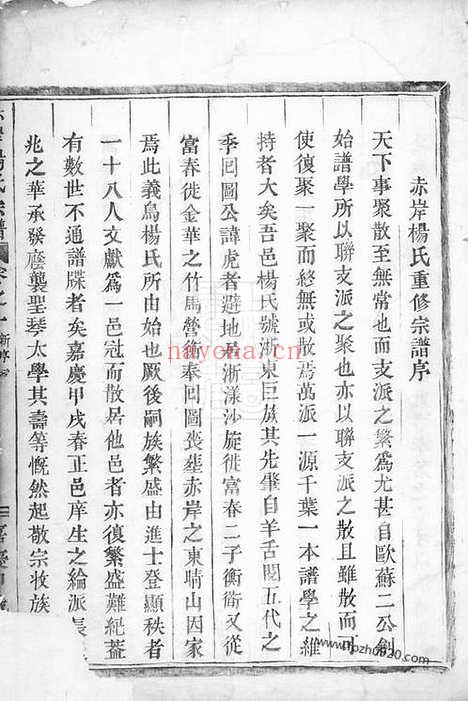 赤岸楊氏重修宗譜序
天下事聚散至無常也而支派之繁爲尤甚自歐蘇二公創
始譜學所以聯支派之聚也亦以聯支派之散且雖散而可
使復聚一聚而終無或散焉萬派一源千葉一本譜學之維
持者大矣吾邑楊氏號浙東巨族其先肇自羊舌閱五代之
季回圖公諱虎者避地吾浙漾沙旋徙富春二子衡衙又從
富春徙金華之竹馬營衛奉回圖喪塟赤岸之東晴山因家
焉此義烏楊氏所由始也厥後嗣族繁盛由進士登顯秩者
一十八人文獻爲一邑冠而散居他邑者亦復繁盛難紀蓋
有數世不通譜牒者矣嘉慶甲戌春正邑庠生之綸派長
兆之華承發慶襲聖琴太學其壽等慨然起敬宗收族
楊氏宗譜
卷之一
新序
nayona.cn
www.npzhong20.com